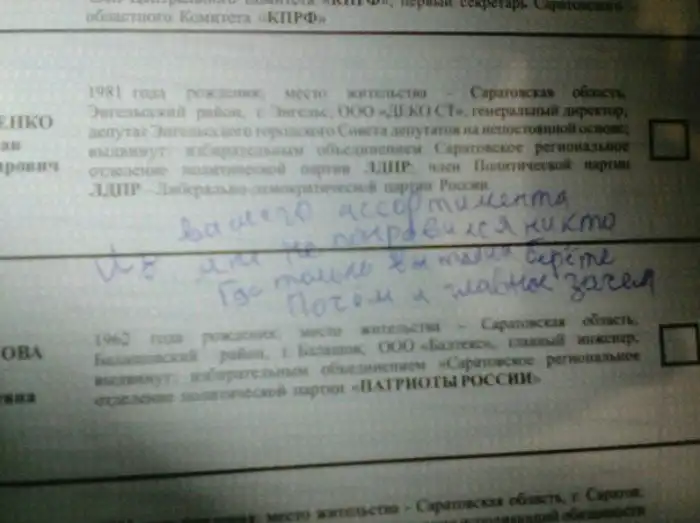 Центрального Комитета «КПРФ», первый секретарь Саратовского
областного Комитета «КПРФ»
ЕНКО
1981 года рождения; место жительства - Саратовская область,
Энгельсский район, г. Энгельс; ООО «ДЕКО СТ», генеральный директор,
депутат Энгельсского городского Совета депутатов на непостоянной основе;
выдвинут: избирательным объединением Саратовское региональное
отделение политической партии ЛДПР; член Политической партии
ЛДПР - Либерально-демократической партии России
Из вашего ассортимента
мне не понравился никто
Где только вы таких берёте
Почём и главное зачем
ОВА
1962 года рождения; место жительства - Саратовская область,
Балашовский район, г. Балашов; ООО «Балтекс», главный инженер;
выдвинут: избирательным объединением «Саратовское региональное
отделение политической партии «ПАТРИОТЫ РОССИИ»
место жительства - Саратовская область, г. Саратов;
обязанности